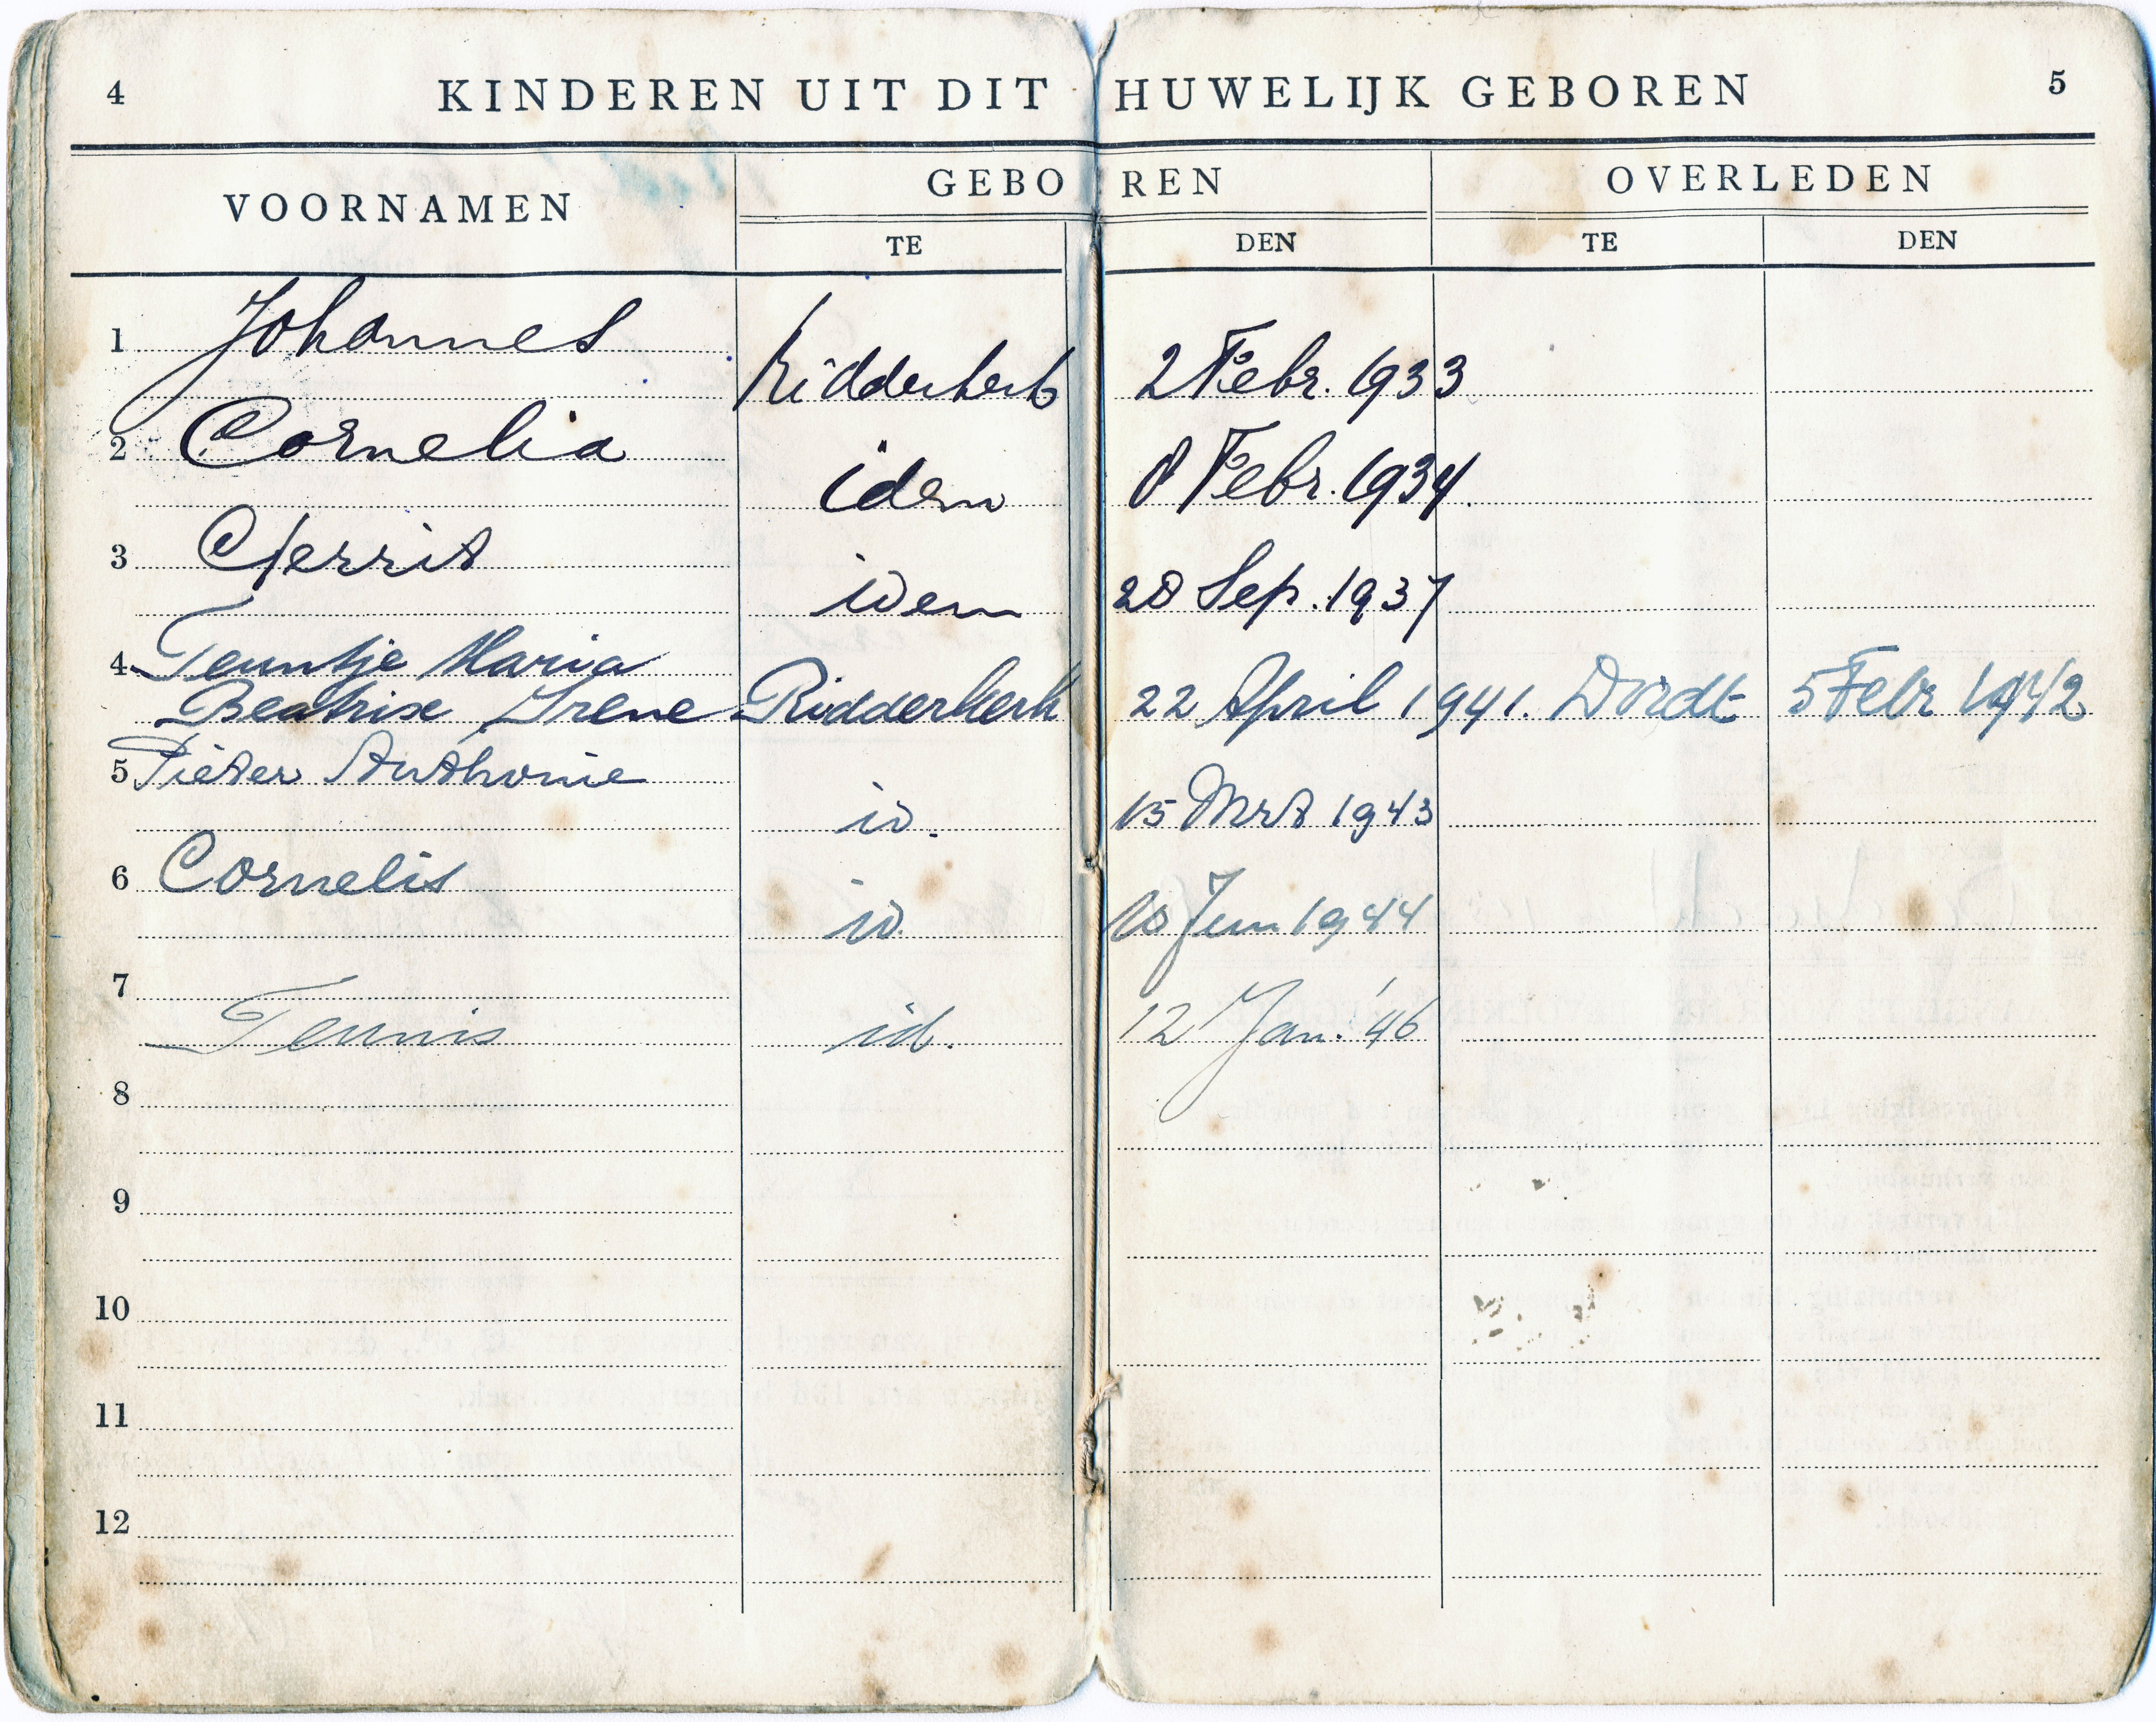 4 KINDEREN UIT DIT HUWELIJK GEBOREN 5
VOORNAMEN GEBOREN OVERLEDEN
TE DEN TE DEN
1 Johannes
Ridderkerk 2 Febr. 1933
2 Cornelia
idem 8 Febr. 1934.
3 Gerrit
idem 28 Sep. 1937
4 Teuntje Maria
Beatrix Irene Ridderkerk 22 April 1941. Dordt 5 Febr 1942
5 Pieter Anthonie
id. 15 Mrt 1943
6 Cornelis
id. Juni 1944
7
Teunis id. 12 Jan. '46
8
9
10
11
12